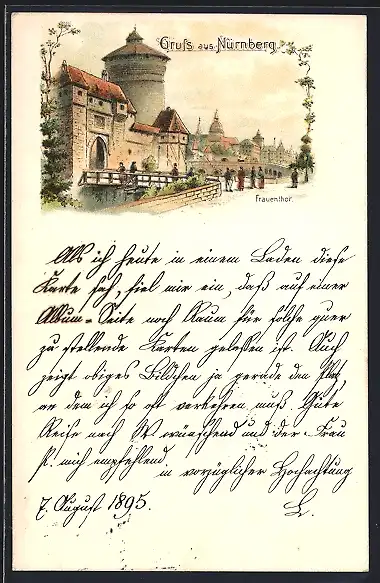 Gruß aus Nürnberg.
Frauenthor.
Als ich heute in einem Laden diese
Karte sah, fiel mir ein, daß auf einer
Album-Seite noch Raum für solche quer
zu stellende Karten gelassen ist. Auch
zeigt obiges Bildchen ja gerade den Platz,
an dem ich so oft verkehren muß. Gute
Reise nach W. wünschend und der Frau
P. mich empfehlend
in vorzüglicher Hochachtung
7. August 1895. L.